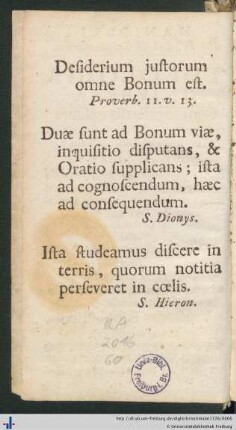 Desiderium juſtorum
omne Bonum eſt.
Proverb. 11. v. 13.
Duæ ſunt ad Bonum viæ,
inquiſitio diſputans, &
Oratio ſupplicans; iſta
ad cognoſcendum, hæc
ad conſequendum.
S. Dionys.
Iſta ſtudeamus diſcere in
terris, quorum notitia
perſeveret in cœlis.
S. Hieron.
RA
2016
60
Univ.-Bibl.
Freiburg i. Br.
© Universitätsbibliothek Freiburg